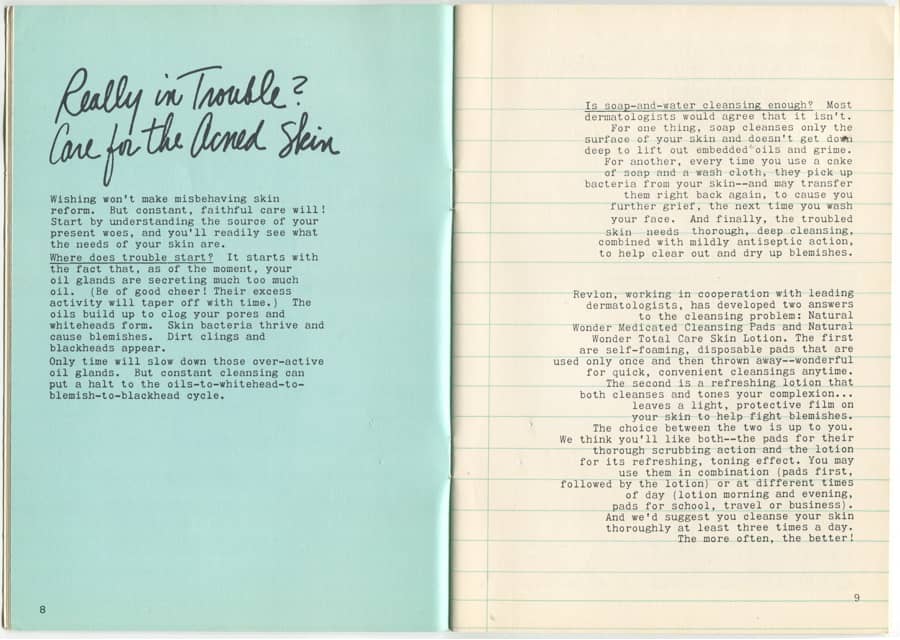 Really in Trouble?
Care for the Acned Skin
Wishing won't make misbehaving skin
reform.  But constant, faithful care will!
Start by understanding the source of your
present woes, and you'll readily see what
the needs of your skin are.
Where does trouble start?  It starts with
the fact that, as of the moment, your
oil glands are secreting much too much
oil.  (Be of good cheer! Their excess
activity will taper off with time.)  The
oils build up to clog your pores and
whiteheads form.  Skin bacteria thrive and
cause blemishes.  Dirt clings and
blackheads appear.
Only time will slow down those over-active
oil glands.  But constant cleansing can
put a halt to the oils-to-whitehead-to-
blemish-to-blackhead cycle.
8
Is soap-and-water cleansing enough?  Most
dermatologists would agree that it isn't.
For one thing, soap cleanses only the
surface of your skin and doesn't get down
deep to lift out embedded oils and grime.
For another, every time you use a cake
of soap and a wash cloth, they pick up
bacteria from your skin--and may transfer
them right back again, to cause you
further grief, the next time you wash
your face.  And finally, the troubled
skin needs thorough, deep cleansing,
combined with mildly antiseptic action,
to help clear out and dry up blemishes.
Revlon, working in cooperation with leading
dermatologists, has developed two answers
to the cleansing problem: Natural
Wonder Medicated Cleansing Pads and Natural
Wonder Total Care Skin Lotion. The first
are self-foaming, disposable pads that are
used only once and then thrown away--wonderful
for quick, convenient cleansings anytime.
The second is a refreshing lotion that
both cleanses and tones your complexion...
leaves a light, protective film on
your skin to help fight blemishes.
The choice between the two is up to you.
We think you'll like both--the pads for their
thorough scrubbing action and the lotion
for its refreshing, toning effect. You may
use them in combination (pads first,
followed by the lotion) or at different times
of day (lotion morning and evening,
pads for school, travel or business).
And we'd suggest you cleanse your skin
thoroughly at least three times a day.
The more often, the better!
9